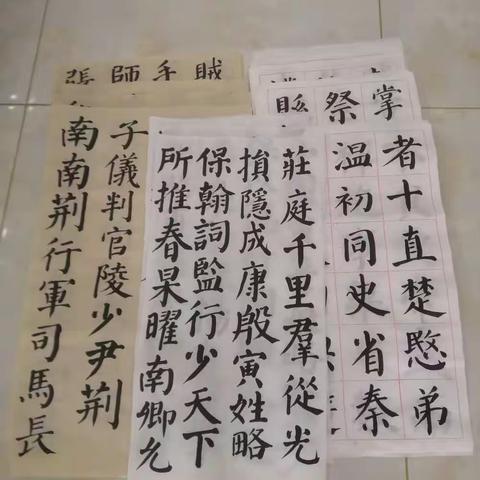 掌
祭
縣
者十直楚愍弟
溫初同史省秦
莊庭千里羣從光
損隱成康殷寅姓略
保翰詞監行少天下
所推春杲曜南卿允
賊
手
師
張
子儀判官陵少尹荆
南南荆行軍司馬長